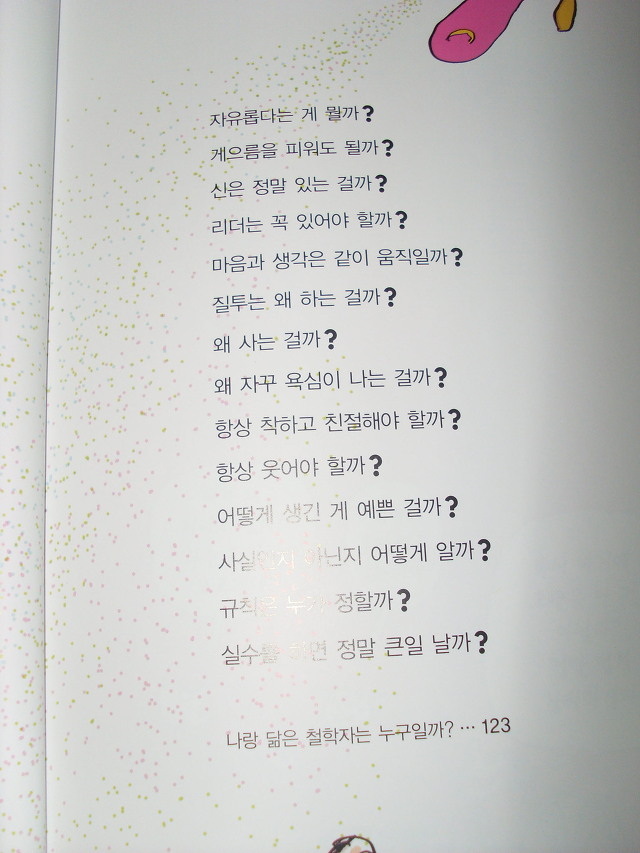 자유롭다는 게 뭘까?
게으름을 피워도 될까?
신은 정말 있는 걸까?
리더는 꼭 있어야 할까?
마음과 생각은 같이 움직일까?
질투는 왜 하는 걸까?
왜 사는 걸까?
왜 자꾸 욕심이 나는 걸까?
항상 착하고 친절해야 할까?
항상 웃어야 할까?
어떻게 생긴 게 예쁜 걸까?
사실인지 아닌지 어떻게 알까?
규칙은 누가 정할까?
실수를 하면 정말 큰일 날까?
나랑 닮은 철학자는 누구일까? ··· 123